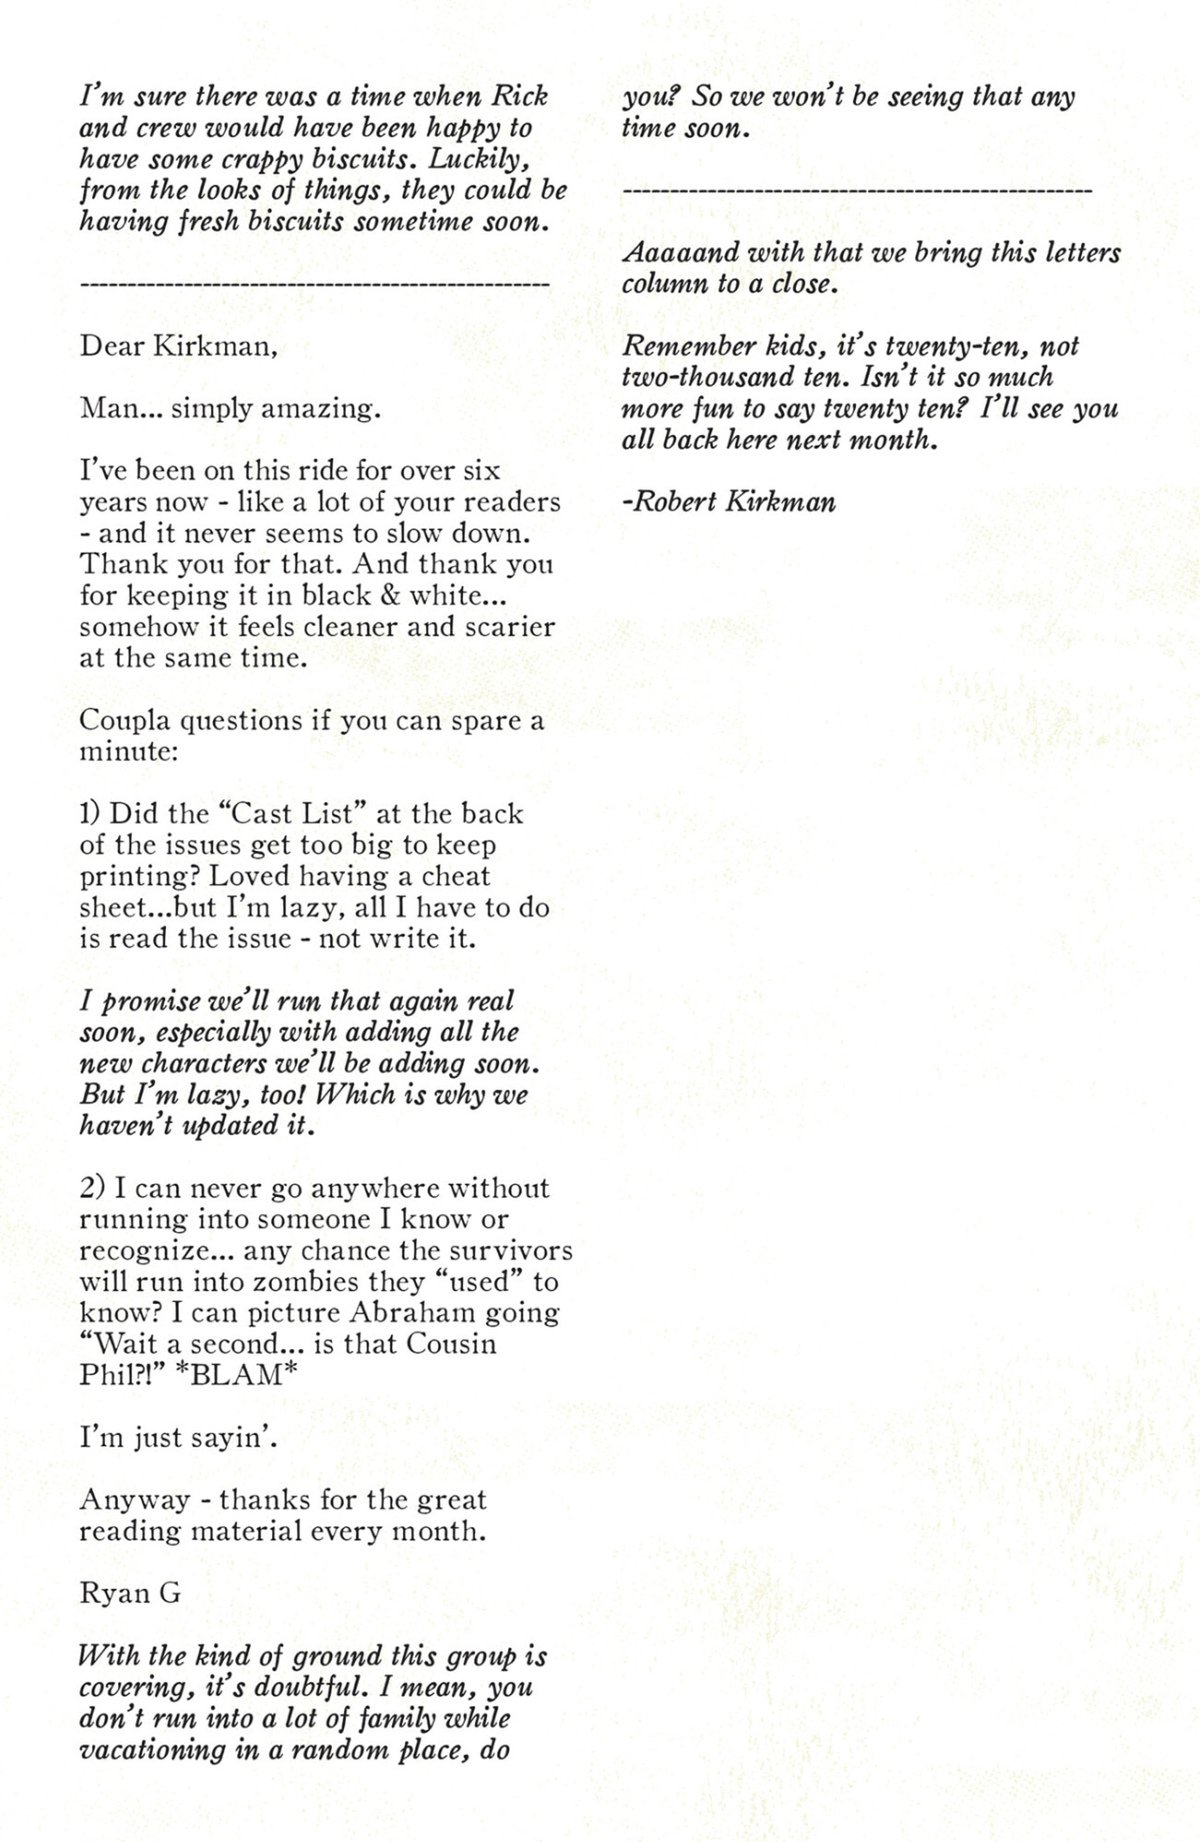 I'm sure there was a time when Rick
and crew would have been happy to
have some crappy biscuits. Luckily,
from the looks of things, they could be
having fresh biscuits sometime soon.
--------------------------------------------------
Dear Kirkman,
Man... simply amazing.
I've been on this ride for over six
years now - like a lot of your readers
- and it never seems to slow down.
Thank you for that. And thank you
for keeping it in black & white...
somehow it feels cleaner and scarier
at the same time.
Coupla questions if you can spare a
minute:
1) Did the “Cast List” at the back
of the issues get too big to keep
printing? Loved having a cheat
sheet...but I'm lazy, all I have to do
is read the issue - not write it.
I promise we'll run that again real
soon, especially with adding all the
new characters we'll be adding soon.
But I'm lazy, too! Which is why we
haven't updated it.
2) I can never go anywhere without
running into someone I know or
recognize... any chance the survivors
will run into zombies they “used” to
know? I can picture Abraham going
“Wait a second... is that Cousin
Phil?!” *BLAM*
I'm just sayin'.
Anyway - thanks for the great
reading material every month.
Ryan G
With the kind of ground this group is
covering, it's doubtful. I mean, you
don't run into a lot of family while
vacationing in a random place, do
you? So we won't be seeing that any
time soon.
--------------------------------------------------
Aaaaand with that we bring this letters
column to a close.
Remember kids, it's twenty-ten, not
two-thousand ten. Isn't it so much
more fun to say twenty ten? I'll see you
all back here next month.
-Robert Kirkman